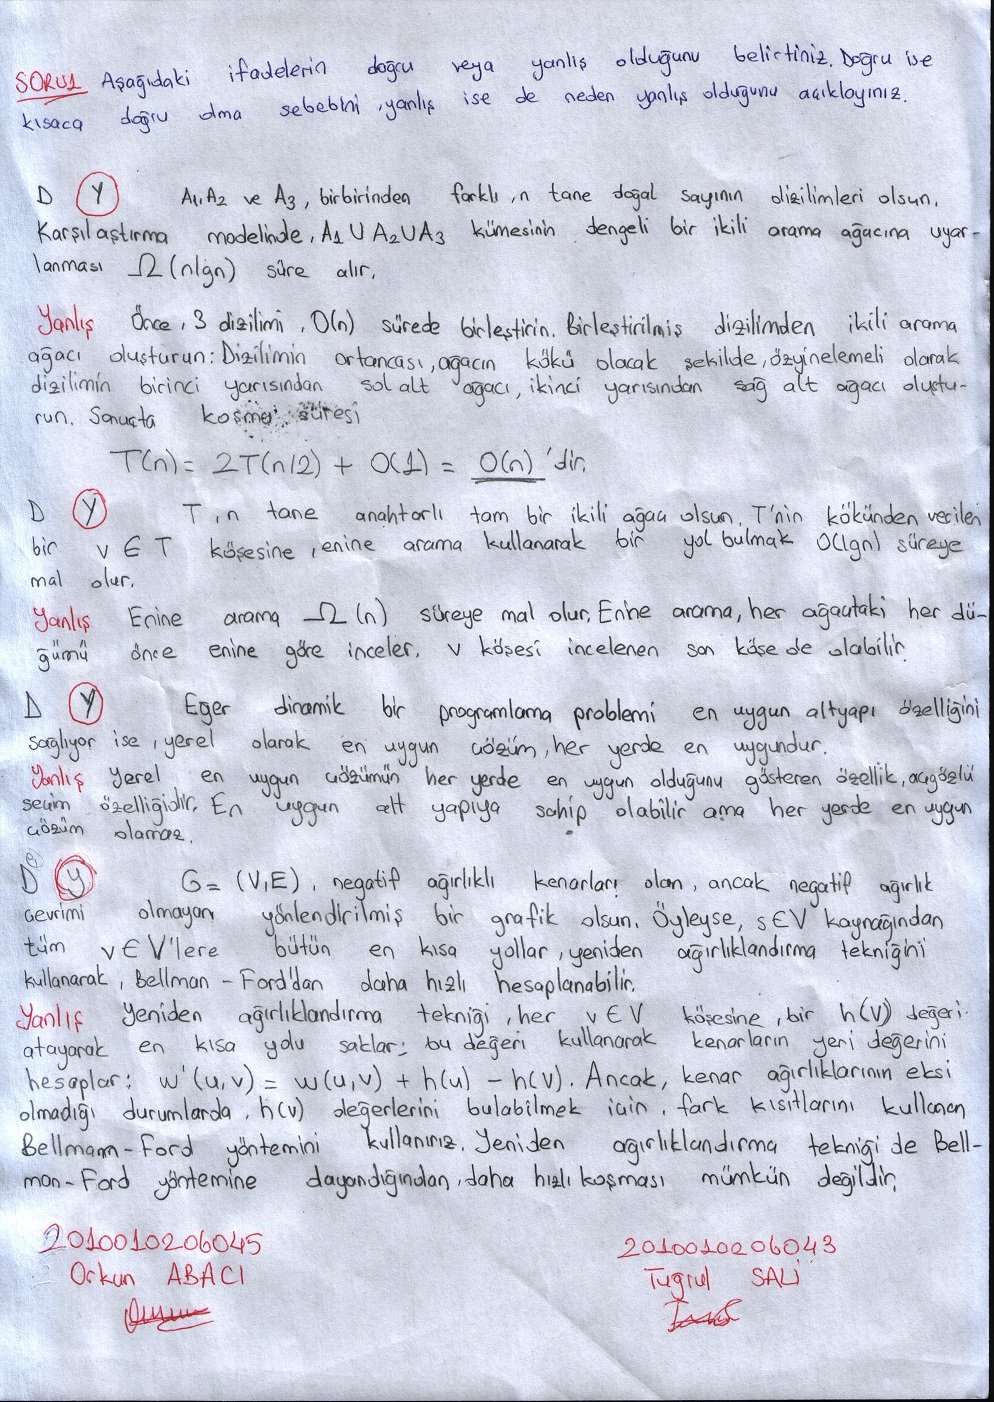 SORU1 Aşağıdaki ifadelerin doğru veya yanlış olduğunu belirtiniz. Doğru ise
kısaca doğru olma sebebini, yanlış ise de neden yanlış olduğunu açıklayınız.
D Y A1, A2 ve A3, birbirinden farklı, n tane doğal sayının dizilimleri olsun.
Karşılaştırma modelinde, A1 U A2 U A3 kümesinin dengeli bir ikili arama ağacına uyar-
lanması Ω(nlgn) süre alır.
Yanlış Önce, 3 dizilimi, O(n) sürede birleştirin. Birleştirilmiş dizilimden ikili arama
ağacı oluşturun: Dizilimin ortancası, ağacın kökü olacak şekilde, özyinelemeli olarak
dizilimin birinci yarısından sol alt ağacı, ikinci yarısından sağ alt ağacı oluştu-
run. Sonuçta koşma süresi
T(n) = 2T(n/2) + O(1) = O(n) 'dir.
D Y T, n tane anahtarlı tam bir ikili ağacı olsun. T'nin kökünden verilen
bir v ∈ T köşesine, enine arama kullanarak bir yol bulmak O(lgn) süreye
mal olur.
Yanlış Enine arama Ω(n) süreye mal olur. Enine arama, her ağaçtaki her dü-
ğümü önce enine göre inceler. v köşesi incelenen son köşe de olabilir.
D Y Eğer dinamik bir programlama problemi en uygun altyapı özelliğini
sağlıyor ise, yerel olarak en uygun çözüm, her yerde en uygundur.
Yanlış Yerel en uygun çözümün her yerde en uygun olduğunu gösteren özellik, açgözlü
seçim özelliğidir. En uygun alt yapıya sahip olabilir ama her yerde en uygun
çözüm olamaz.
D Y G = (V,E), negatif ağırlıklı kenarları olan, ancak negatif ağırlık
çevrimi olmayan yönlendirilmiş bir grafik olsun. Öyleyse, s∈V kaynağından
tüm v∈V'lere bütün en kısa yollar, yeniden ağırlıklandırma tekniğini
kullanarak, Bellman-Ford'dan daha hızlı hesaplanabilir.
Yanlış Yeniden ağırlıklandırma tekniği, her v∈V köşesine, bir h(v) değeri
atayarak en kısa yolu saklar; bu değeri kullanarak kenarların yeni değerini
hesaplar: w'(u,v) = w(u,v) + h(u) - h(v). Ancak, kenar ağırlıklarının eksi
olmadığı durumlarda, h(v) değerlerini bulabilmek için, fark kısıtlarını kullanan
Bellmann-Ford yöntemini kullanırız. Yeniden ağırlıklandırma tekniği de Bell-
man-Ford yöntemine dayandığından, daha hızlı koşması mümkün değildir.
2010010206045 2010010206043
Orkun ABACI Tuğrul SALİ